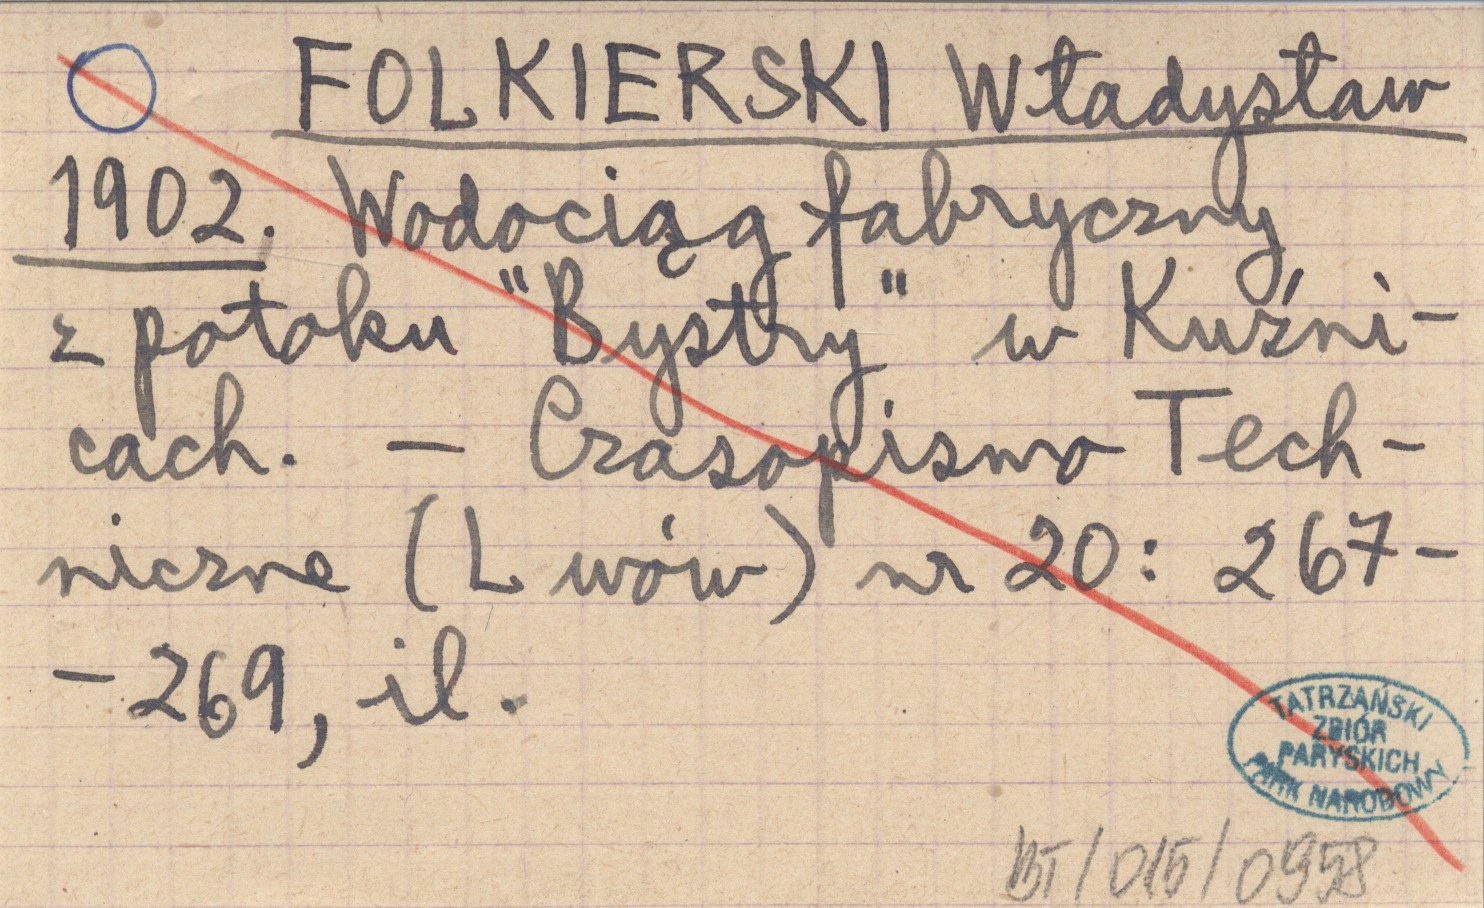 FOLKIERSKI Władysław
1902. Wodociąg fabryczny
z potoku "Bystry" w Kuźni-
cach. — Czasopismo Tech-
niczne (Lwów) nr 20: 267-
-269, il.
TATRZAŃSKI
ZBIÓR
PARYSKICH
PARK NARODOWY
BT/015/0958